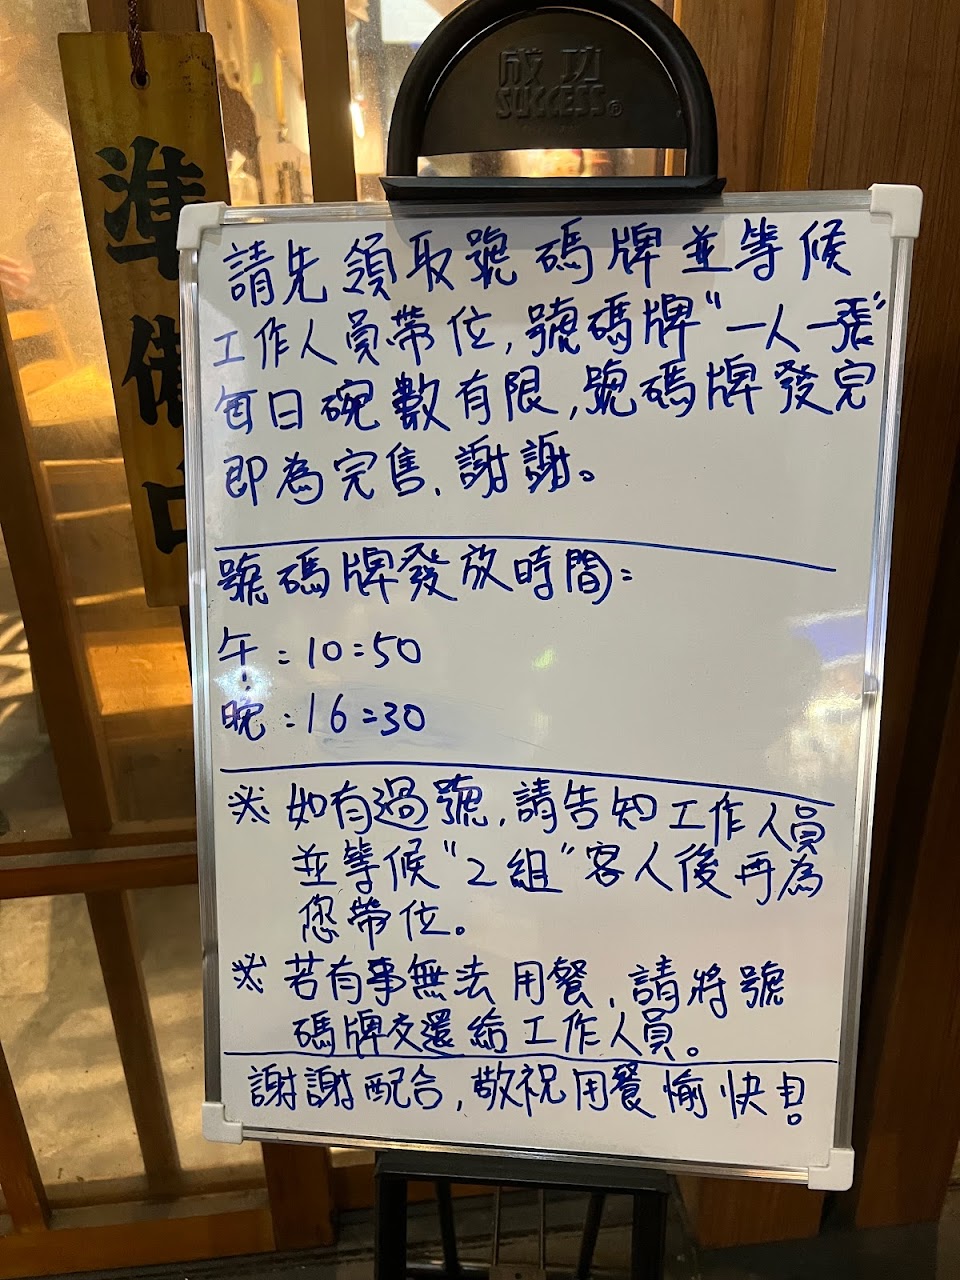 成功
SUCCESS®
準備中
請先領取號碼牌並等候
工作人員帶位,號碼牌"一人一張"
每日碗數有限,號碼牌發完
即為完售,謝謝。
號碼牌發放時間:
午:10:50
晚:16:30
※如有過號,請告知工作人員
並等候"2組"客人後再為
您帶位。
※若有事無法用餐,請將號
碼牌交還給工作人員。
謝謝配合,敬祝用餐愉快!